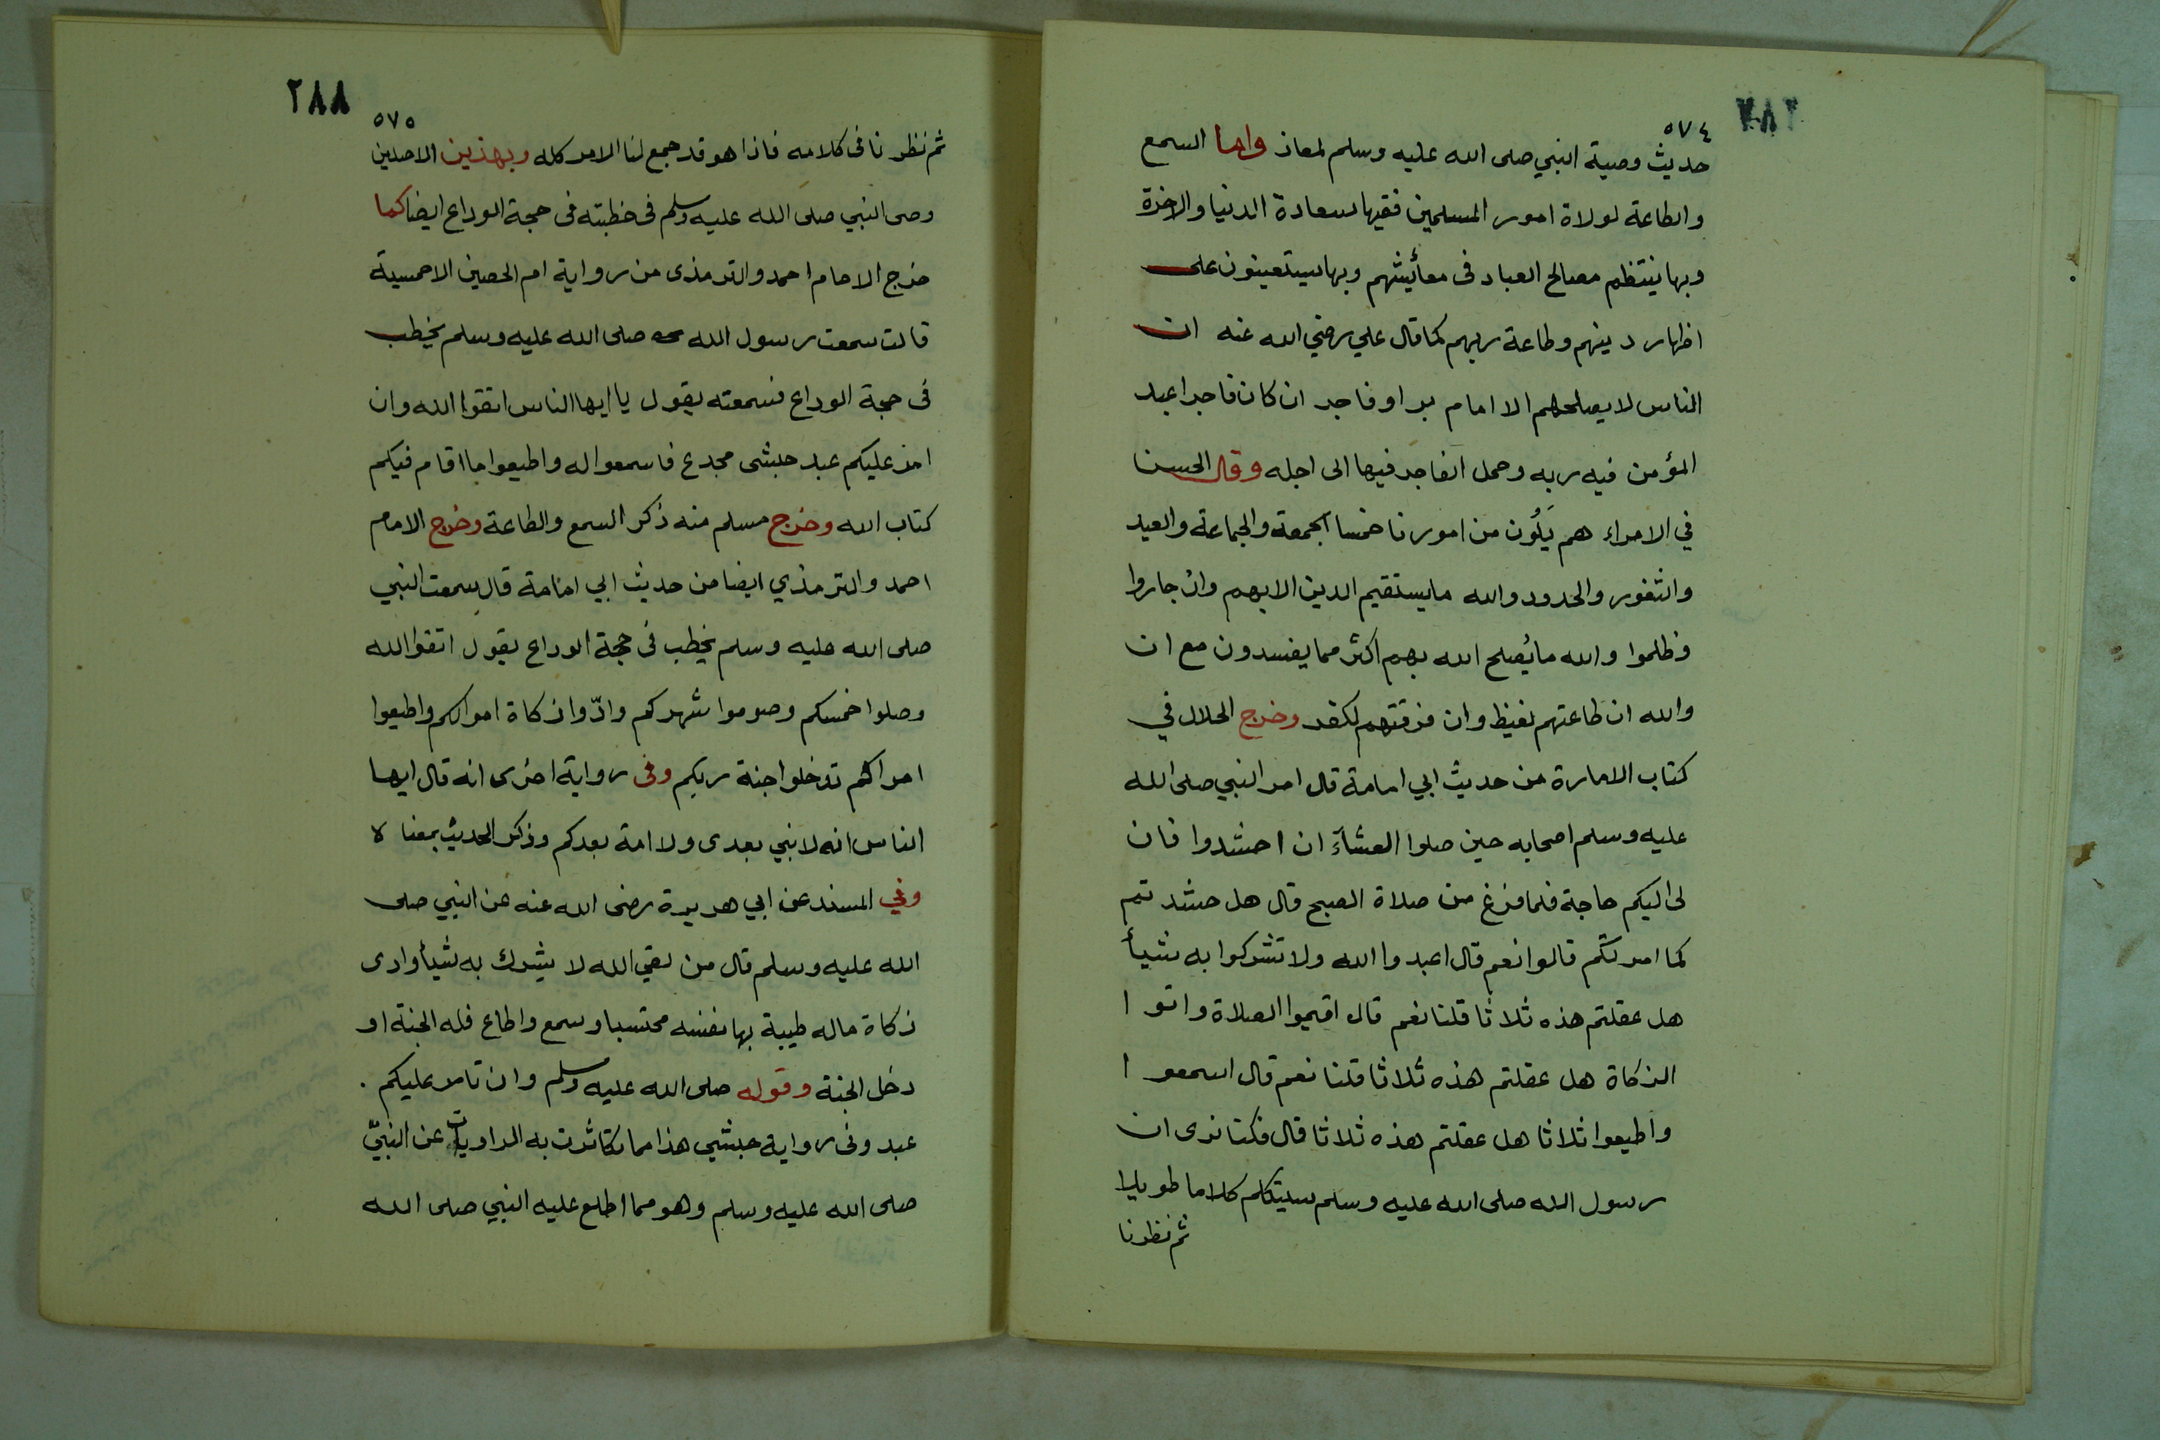 ٥٧٤
حديث وصية النبي صلى الله عليه وسلم لمعاذ واما السمع
والطاعة لولاة امور المسلمين ففيها سعادة الدنيا والاخرة
وبها ينتظم مصالح العباد فى معائيشهم وبها يستعينون على
اظهار دينهم وطاعة ربهم كما قال علي رضي الله عنه ان
الناس لا يصلحهم الا امام بر او فاجر ان كان فاجرا عبد
المؤمن فيه ربه وحمل الفاجر فيها الى اجله وقال الحسن
في الامراء هم يَلُون من امورنا خمسا الجمعة والجماعة والعيد
والثغور والحدود والله ما يستقيم الدين الا بهم وان جاروا
وظلموا والله ما يُصلح الله بهم اكثر مما يفسدون مع ان
والله ان طاعتهم لغيظ وان فرقتهم لكفر وخرج الخلال في
كتاب الامارة من حديث ابي امامة قال امر النبي صلى الله
عليه وسلم اصحابه حين صلوا العشآء ان احشدوا فان
لى اليكم حاجة فلما فرغ من صلاة الصبح قال هل حشد تم
كما امرتكم قالوا نعم قال اعبدوا الله ولا تشركوا به شيأ
هل عقلتم هذه ثلاثا قلنا نعم قال اقيموا الصلاة واتو ا
الزكاة هل عقلتم هذه ثلاثا قلنا نعم قال اسمعو ا
واطيعوا ثلاثا هل عقلتم هذه ثلاثا قال فكنا نرى ان
رسول الله صلى الله عليه وسلم سيتكلم كلاما طويلا
ثم نظرنا
٢٨٨
٥٧٥
ثم نظرنا فى كلامه فاذا هو قد جمع لنا الامر كله وبهذين الاصلين
وصى النبي صلى الله عليه وسلم فى خطبته فى حجة الوداع ايضا كما
خرج الامام احمد والترمذى من رواية ام الحصين الاحمسية
قالت سمعت رسول الله صلى الله عليه وسلم يخطب
فى حجة الوداع فسمعته يقول يا ايها الناس اتقوا الله وان
امر عليكم عبد حبشى مجدع فاسمعوا له واطيعوا ما اقام فيكم
كتاب الله وخرج مسلم منه ذكر السمع والطاعة وخرج الامام
احمد والترمذي ايضا من حديث ابي امامة قال سمعت النبي
صلى الله عليه وسلم يخطب فى حجة الوداع يقول اتقوا الله
وصلوا خمسكم وصوموا شهركم وادّوا زكاة اموالكم واطيعوا
امراكم تدخلوا جنة ربكم وفى رواية اخرى انه قال ايها
الناس انه لا نبي بعدى ولا امة بعدكم وذكر الحديث بمعنا ه
وفي المسند عن ابي هريرة رضى الله عنه عن النبي صلى
الله عليه وسلم قال من لقي الله لا يشرك به شيأ وادى
زكاة ماله طيبة بها نفسه محتسبا وسمع واطاع فله الجنة او
دخل الجنة وقوله صلى الله عليه وسلم وان تامر عليكم .
عبد وفى رواية حبشي هذا مما تكاثرت به الراويات عن النبيّ
صلى الله عليه وسلم وهو مما اطلع عليه النبي صلى الله